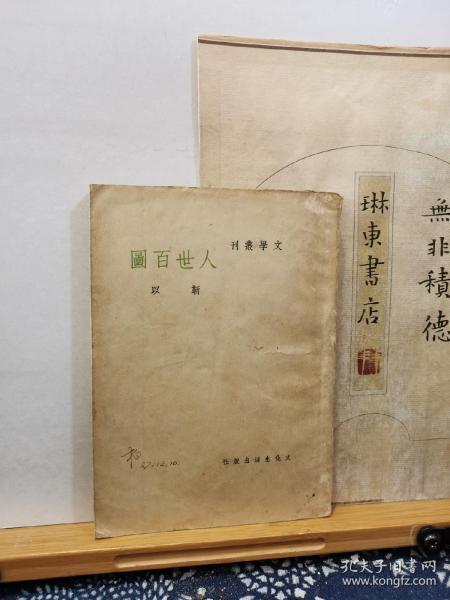 文學叢刊
人世百圖
靳以
文化生活出版社
37.12.10.
琳東書店
無非積德
孔夫子旧书网
www.kongfz.com